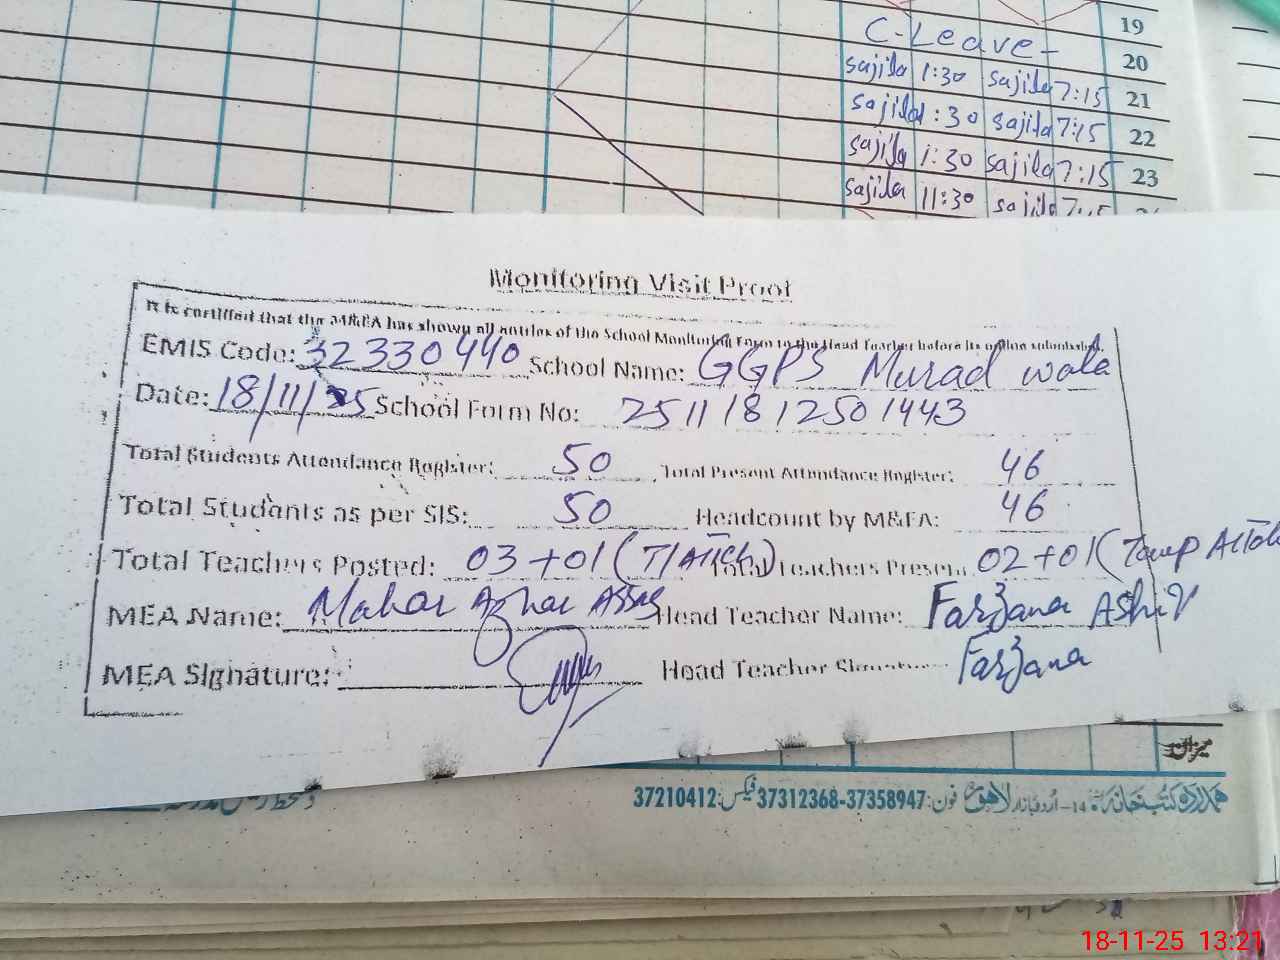 19
C-Leave-
20
sajila 1:30 sajila 7:15 21
sajila 1:30 sajila 7:15 22
sajila 1:30 sajila 7:15 23
sajila 11:30 sajila 7:15
Monitoring Visit Proof
It is certified that the M&EA has shown all entries of the School Monitoring Form to the Head Teacher before its online submission.
EMIS Code: 32330440 School Name: GGPS Murad wala
Date: 18/11/25 School Form No: 25111812501443
Total Students Attendance Register: 50 Total Present Attendance Register: 46
Total Students as per SIS: 50 Headcount by M&EA: 46
Total Teachers Posted: 03+01 (T/Attch) Total Teachers Present 02+01 (
MEA Name: Mahar Azhar Abbas Head Teacher Name: Farzana Ashir
MEA Signature: Head Teacher Signature Farzana
میزان
ہمدرد کتب خانہ 14-اُردو بازار لاہور فون: 37312368-37358947 فیکس: 37210412
18-11-25 13:21